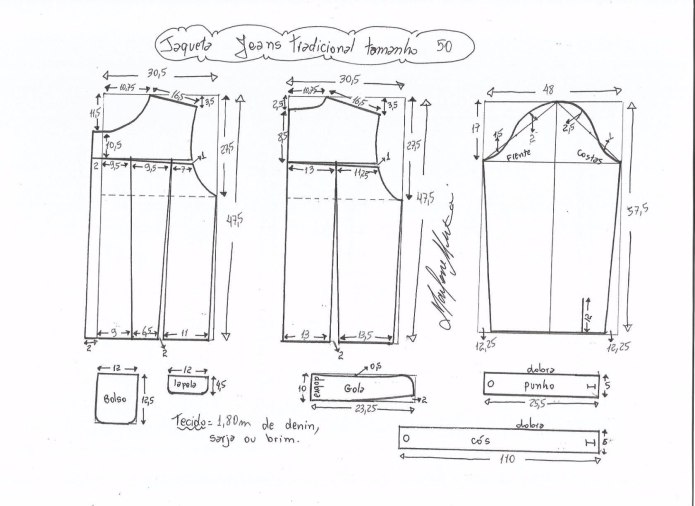 Jaqueta Jeans Tradicional tamanho 50
30,5
10,75
16,5
3,5
11,5
10,5
27,5
47,5
1
2
9,5
9,5
7
9
6,5
11
2
2
30,5
10,75
16,5
3,5
2,5
8,5
27,5
47,5
1
13
11,25
13
13,5
2
48
17
1,5
2
2,5
1
Frente
Costas
57,5
12
12,25
12,25
12
Bolso
12,5
12
lapela
4,5
Tecido = 1,80m de denin,
sarja ou brim.
0,5
10
dobra
Gola
2
23,25
dobra
punho
5
25,5
dobra
cós
110